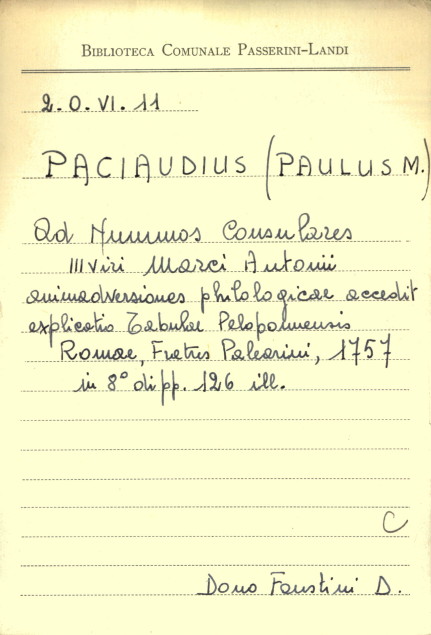 BIBLIOTECA COMUNALE PASSERINI-LANDI
2.O.VI.11
PACIAUDIUS (PAULUS M.)
Ad Nummos Consulares
III viri Marci Antonii
animadversiones philologicae accedit
explicatio Tabulae
Romae, Fratris Palearini, 1757
in 8° di pp. 126 ill.
C
Dono Faustini D.